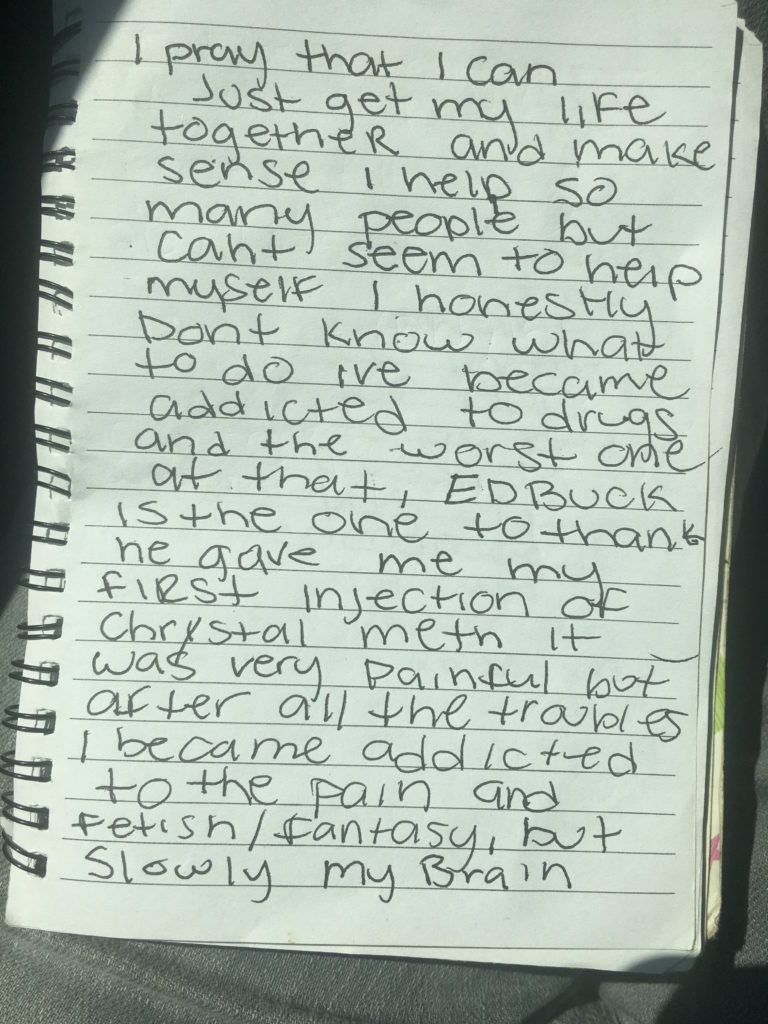 I pray that I can
Just get my life
together and make
sense I help so
many people but
cant seem to help
myself I honestly
Dont know what
to do ive became
addicted to drugs
and the worst one
at that, EDBUCK
is the one to thank
he gave me my
first injection of
chrystal meth it
was very painful but
after all the troubles
I became addicted
to the pain and
fetish/fantasy, but
slowly my Brain